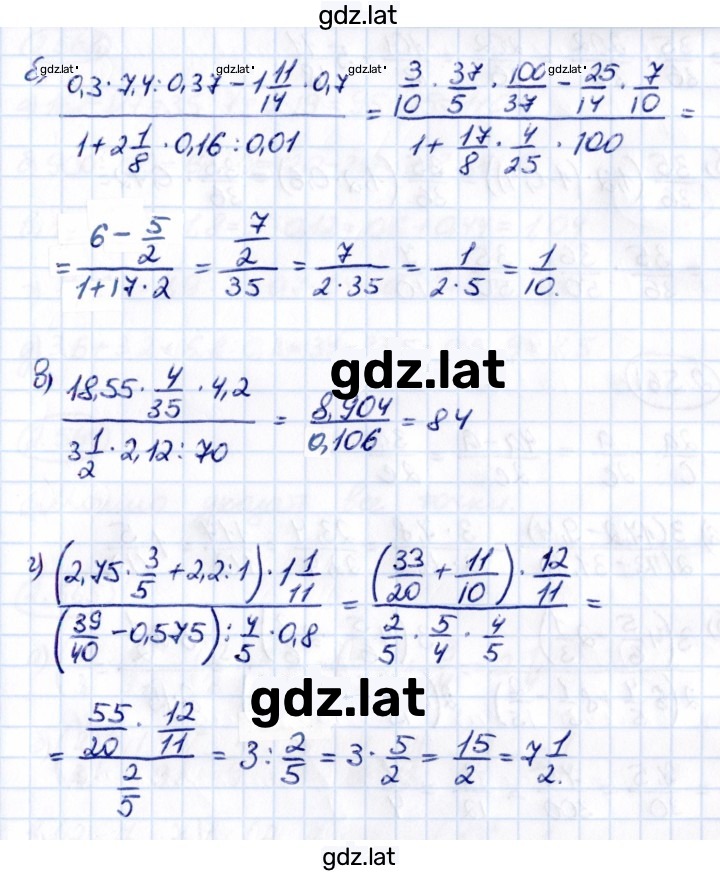 gdz.lat
б) (0,3 · 7,4 : 0,37 − 1 11/14 · 0,7)/(1 + 2 1/8 · 0,16 : 0,01) = (3/10 · 37/5 · 100/37 − 25/14 · 7/10)/(1 + 17/8 · 4/25 · 100) =
gdz.lat gdz.lat gdz.lat gdz.lat
= (6 − 5/2)/(1 + 17 · 2) = (7/2)/35 = 7/(2 · 35) = 1/(2 · 5) = 1/10.
gdz.lat
в) (18,55 · 4/35 · 4,2)/(3 1/2 · 2,12 : 70) = 8,904/0,106 = 84
г) (2,75 · 3/5 + 2,2 : 1) · 1 1/11/((39/40 − 0,575) : 4/5 · 0,8) = (33/20 + 11/10) · 12/11/(2/5 · 5/4 · 4/5) =
gdz.lat
= (55/20 · 12/11)/(2/5) = 3 : 2/5 = 3 · 5/2 = 15/2 = 7 1/2.
gdz.lat